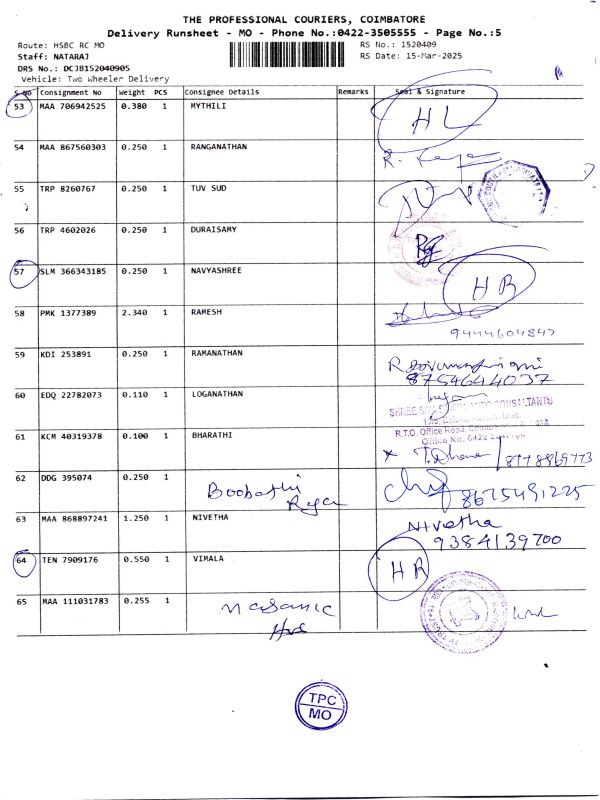 THE PROFESSIONAL COURIERS, COIMBATORE
Delivery Runsheet - MO - Phone No.:0422-3505555 - Page No.:5
Route: HSBC RC MO RS No.: 1520409
Staff: NATARAJ RS Date: 15-Mar-2025
DRS No.: DCJB152040905
Vehicle: Two Wheeler Delivery
S No Consignment No Weight PCS Consignee Details Remarks Seal & Signature
53 MAA 706942525 0.380 1 MYTHILI HL
54 MAA 867560303 0.250 1 RANGANATHAN
55 TRP 8260767 0.250 1 TUV SUD
56 TRP 4602026 0.250 1 DURAISAMY
57 SLM 366343185 0.250 1 NAVYASHREE HR
58 PMK 1377389 2.340 1 RAMESH
9444604847
59 KDI 253891 0.250 1 RAMANATHAN
8754644037
60 EDQ 22782073 0.110 1 LOGANATHAN
61 KCM 40319378 0.100 1 BHARATHI
R.T.O. Office Road,
Office No: 0422
62 DDG 395074 0.250 1 Boobathi 8675491225
63 MAA 868897241 1.250 1 NIVETHA Nivetha
9384139700
64 TEN 7909176 0.550 1 VIMALA HR
65 MAA 111031783 0.255 1
TPC
MO